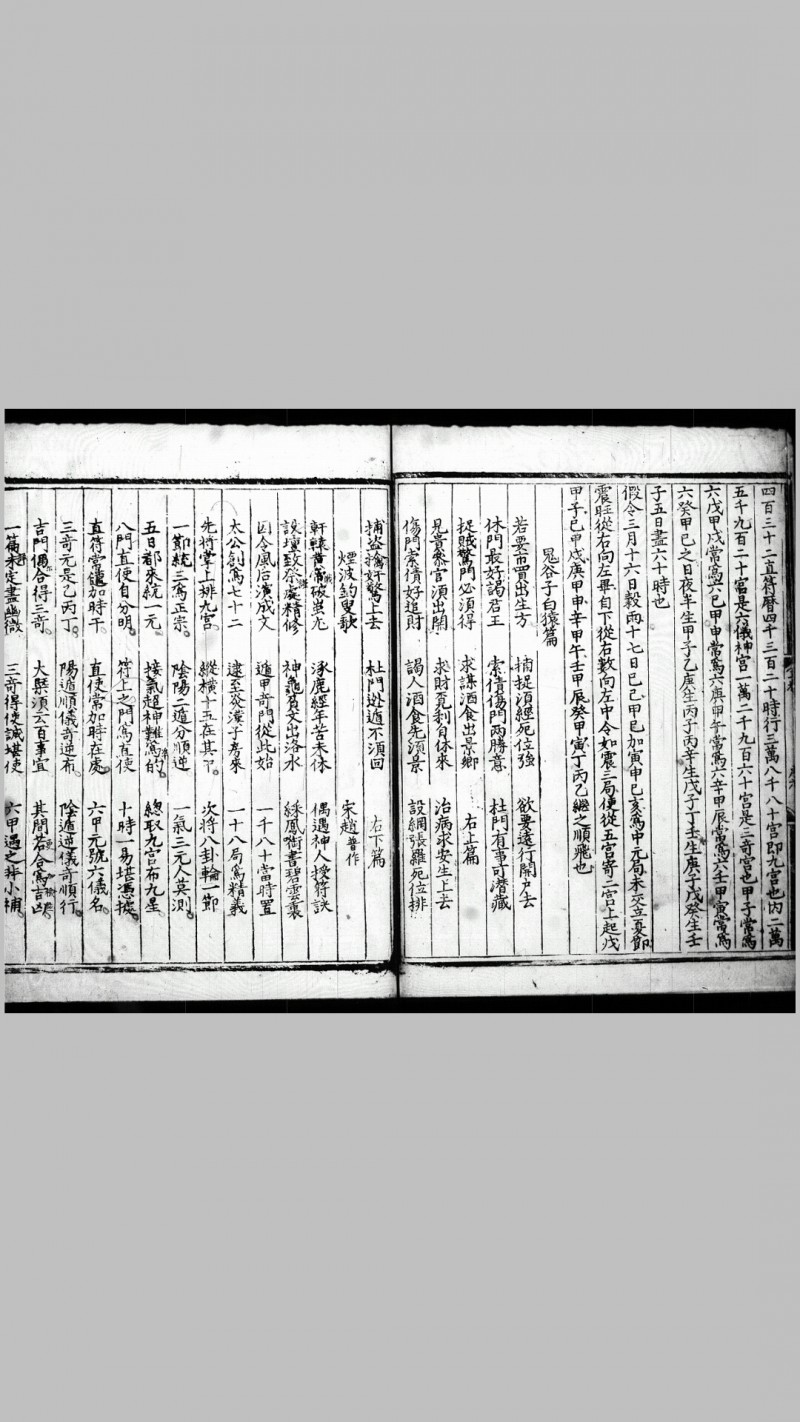 四百三十二直符曆四千三百二十時行三萬八千八十宮即九宮也內二萬
五千九百二十宮是六儀神宮一萬二千九百六十宮是三奇宮也甲子常為
六戊甲戌常為六己甲申常為六庚甲午常為六辛甲辰常為六壬甲寅常為
六癸甲己之日夜半生甲子乙庚生丙子丙辛生戊子丁壬生庚子戊癸生壬
子五日盡六十時也
假令三月十六日穀雨十七日己巳甲己加寅申巳亥為中元局未交立夏節
震旺從右向左畢自下從右數向左中令如震三局便從五宮寄二宮上起戊
甲子己甲戌庚甲申辛甲午壬甲辰癸甲寅丁丙乙繼之順飛也
鬼谷子白猿篇
若要市買出生方 捕捉須經死位強 欲要遠行開戶去
休門最好謁君王 索債傷門兩勝意 杜門有事可潛藏
捉賊驚門必須得 求謀酒食出景鄉 右上篇
見貴參官須出開 求財覓利自休來 治病求安生上去
傷門索債好追財 謁人酒食先須景 設網張羅死位排
捕盜擒奸驚上去 杜門逃遁不須回 右下篇
煙波釣叟歌 宋趙普作
軒轅黃帝破蚩尤 涿鹿經年苦未休 偶遇神人授符訣
設壇致祭處精修 神龜負文出洛水 綵鳳啣書碧雲裏
因令風后演成文 遁甲奇門從此始 一千八十當時置
太公創為七十二 逮至炎漢子房來 一十八局為精義
先將掌上排九宮 縱橫十五在其下 次將八卦輪一節
一節統三為正宗 陰陽二遁分順逆 一氣三元人莫測
五日都來統一元 接氣超神難為的 總取九宮布九星
八門直使自分明 符上之門為直使 十時一易堪憑據
直符常儘加時干 直使常加時在處 六甲元號六儀名
三奇元是乙丙丁 陽遁順儀奇逆布 陰遁逆儀奇順行
吉門偶合得三奇 大槩須云百事宜 其間若合為吉凶
一篇未定盡幽微 三奇得使誠堪使 六甲遇之非小補